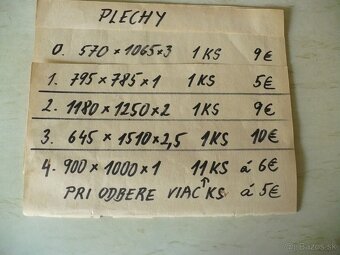 PLECHY
0. 570 × 1065 × 3 1 KS 9 €
1. 795 × 785 × 1 1 KS 5 €
2. 1180 × 1250 × 2 1 KS 9 €
3. 645 × 1510 × 2,5 1 KS 10 €
4. 900 × 1000 × 1 11 KS á 6 €
PRI ODBERE VIAC ↑ KS á 5 €
Bazos.sk